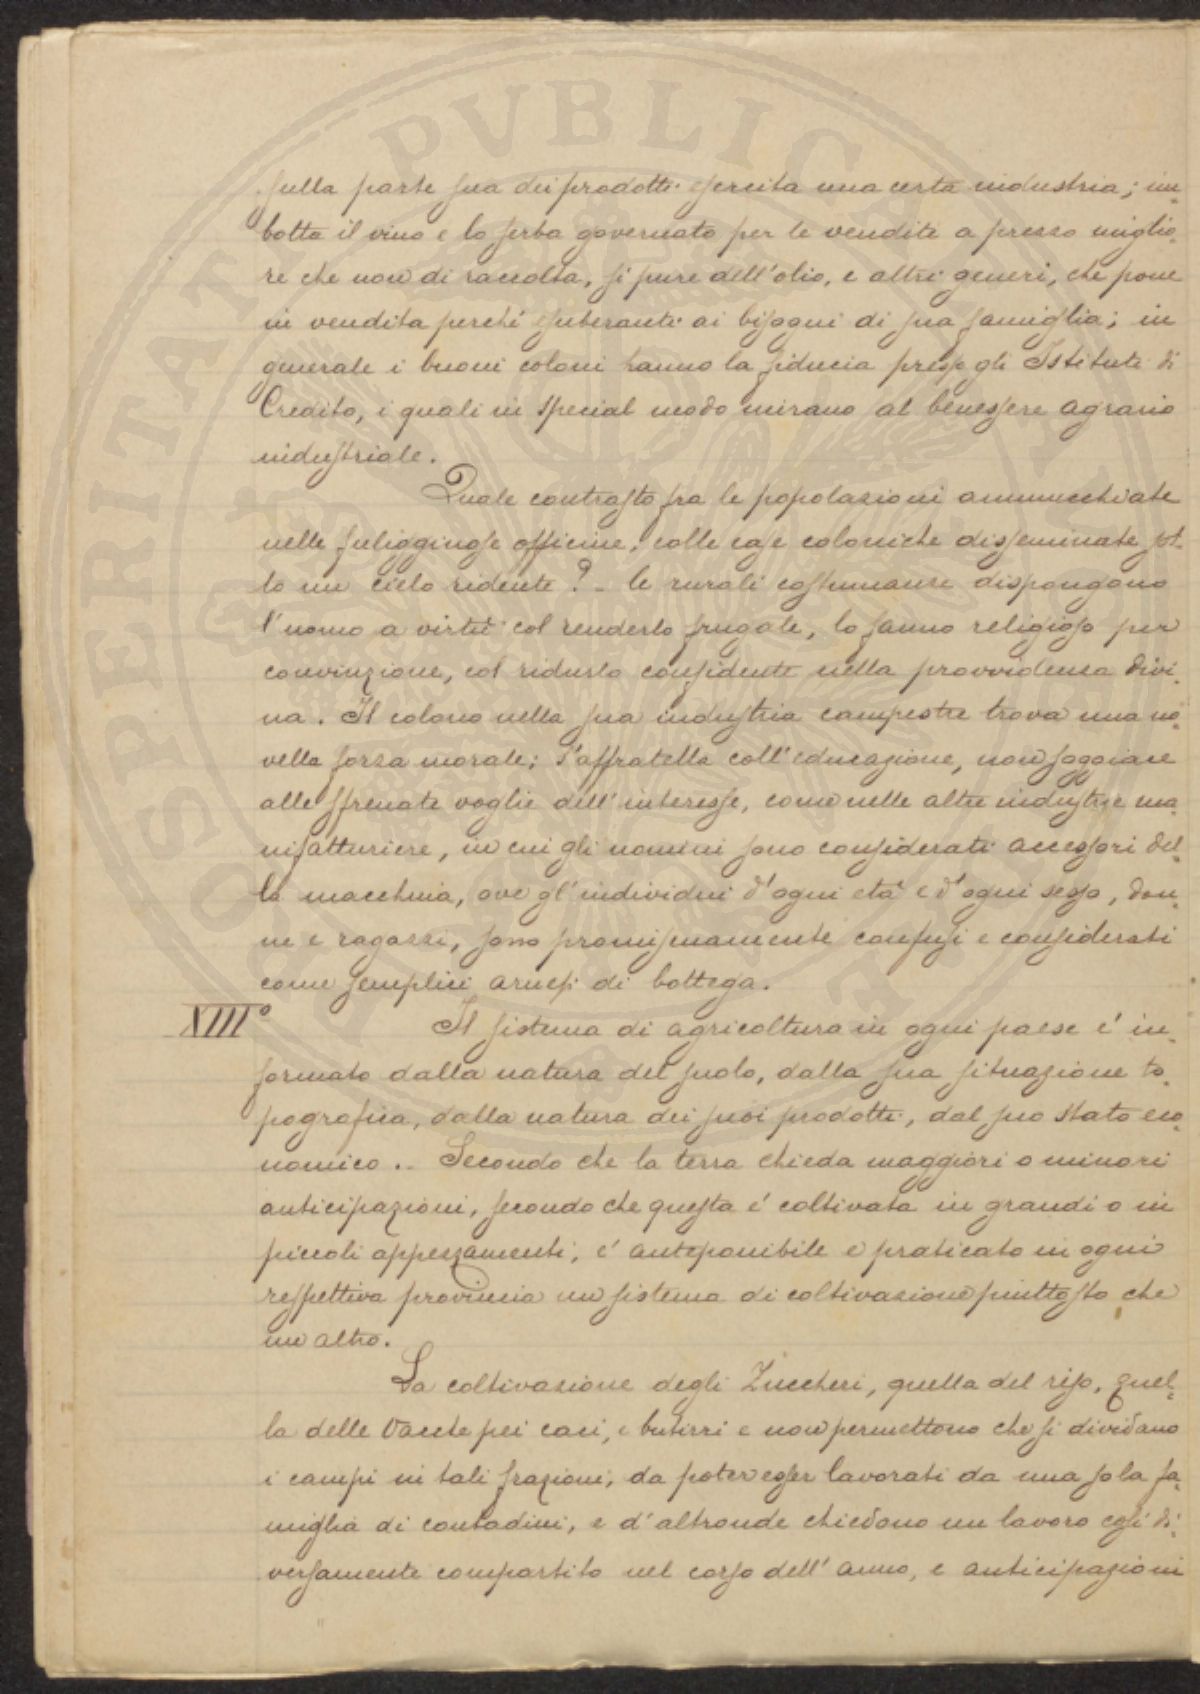 sulla parte sua dei prodotti esercita una certa industria; im-
botta il vino e lo serba governato per le vendite a prezzo miglio-
re che non di raccolta, si pure dell'olio, e altri generi, che pone
in vendita perché esuberanti ai bisogni di sua famiglia; in
generale i buoni coloni hanno la fiducia presso gli Istituti di
Credito, i quali in special modo mirano al benessere agrario
industriale.
Quale contrasto fra le popolazioni ammucchiate
nelle fuligginose officine, colle case coloniche disseminate sot-
to un cielo ridente? - le rurali costumanze dispongono
l'uomo a virtù col renderlo frugale, lo fanno religioso per
convinzione, col ridurlo confidente nella provvidenza divi-
na. Il colono nella sua industria campestre trova una no-
vella forza morale; s'affratella coll'educazione, non soggiace
alle sfrenate voglie dell'interesse, come nelle altre industrie ma-
nifatturiere, in cui gli uomini sono considerati accessori del-
la macchina, ove gl'individui d'ogni età e d'ogni sesso, don-
ne e ragazzi, sono promiscuamente confusi e considerati
come semplici arnesi di bottega.
XIII° Il sistema di agricoltura in ogni paese é in-
formato dalla natura del suolo, dalla sua situazione to-
pografica, dalla natura dei suoi prodotti, dal suo stato eco-
nomico. - Secondo che la terra chieda maggiori o minori
anticipazioni, secondo che questa é coltivata in grandi o in
piccoli appezzamenti, é anteponibile e praticato in ogni
respettiva provincia un sistema di coltivazione piuttosto che
un altro.
La coltivazione degli Zuccheri, quella del riso, quel-
la delle Vacche pei caci, e butirri e non permettono che si dividano
i campi in tali frazioni, da poter esser lavorati da una sola fa-
miglia di contadini, e d'altronde chiedono un lavoro così di-
versamente compartito nel corso dell'anno, e anticipazioni
PVBLICA
PROSPERITATI